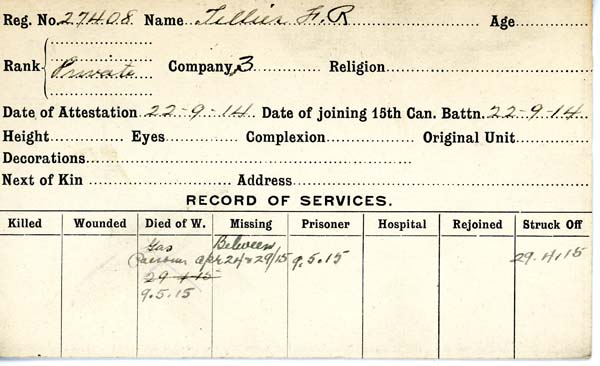 Reg. No. 27408 Name Tellier F. R Age
Rank Private Company 3 Religion
Date of Attestation 22-9-14 Date of joining 15th Can. Battn. 22-9-14
Height Eyes Complexion Original Unit
Decorations
Next of Kin Address
RECORD OF SERVICES.
Killed Wounded Died of W. Missing Prisoner Hospital Rejoined Struck Off
Gas Between
Apr 24 & 29/15 9.5.15 29.4.15
29 4 15
9.5.15